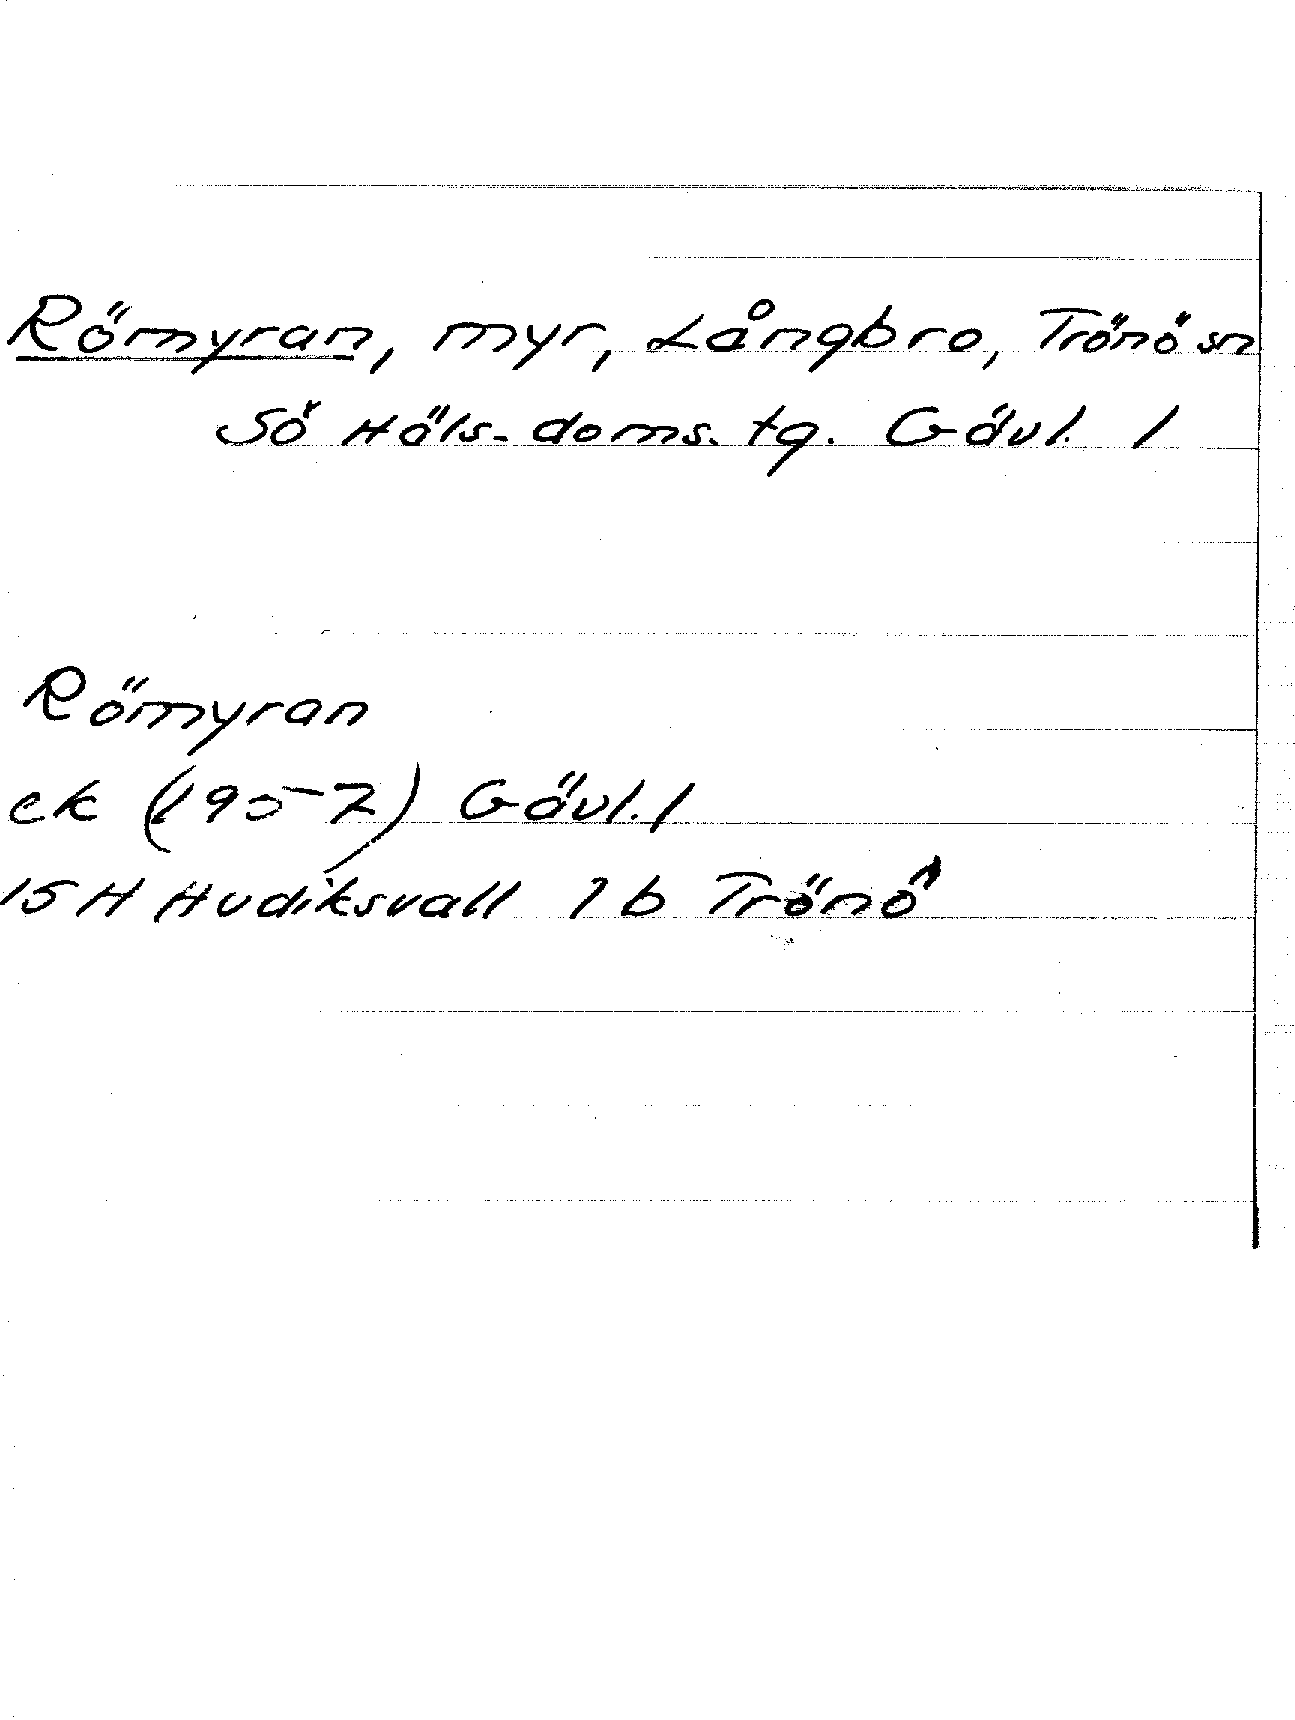 Römyran, myr, Långbro, Trönö sn
Sö Häls. doms. tg. Gävl. l
Römyran
ek (1957) Gävl. l
15 H Hudiksvall 1 b Trönö